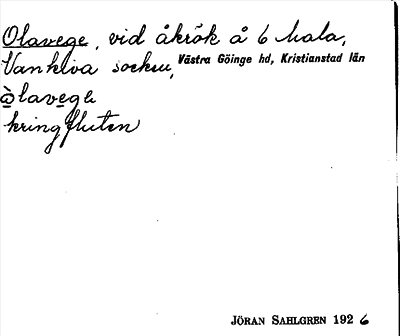 Olavege, vid åkrök å 6 hala,
Vankiva socken, Västra Göinge hd, Kristianstad län
òlavegɛ
kringfluten
JÖRAN SAHLGREN 1926